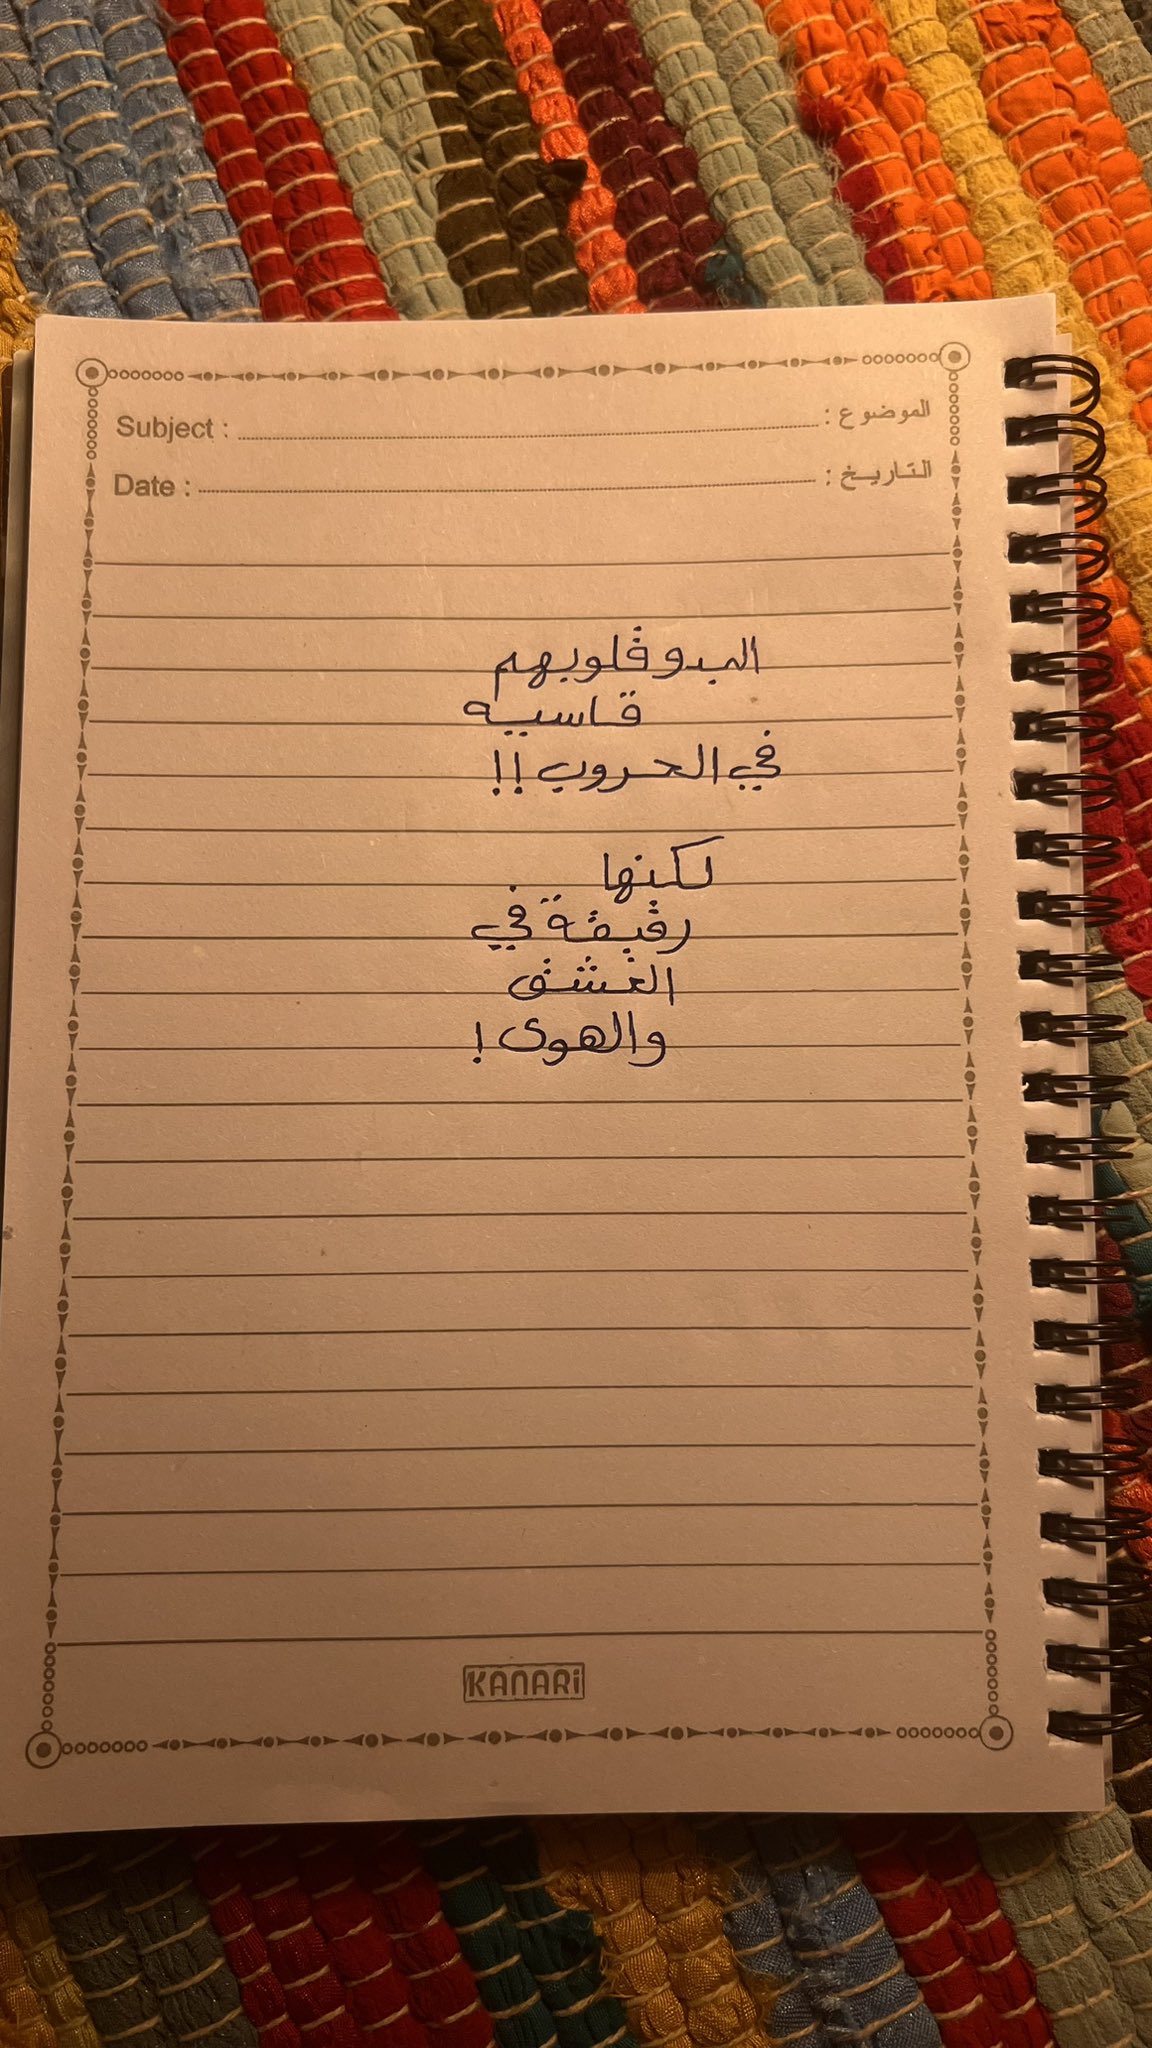 Subject : الموضوع :
Date : التاريخ :
البدو قلوبهم
قاسيه
في الحروب !!
لكنها
رقيقة في
العشق
والهوى !
KANARi